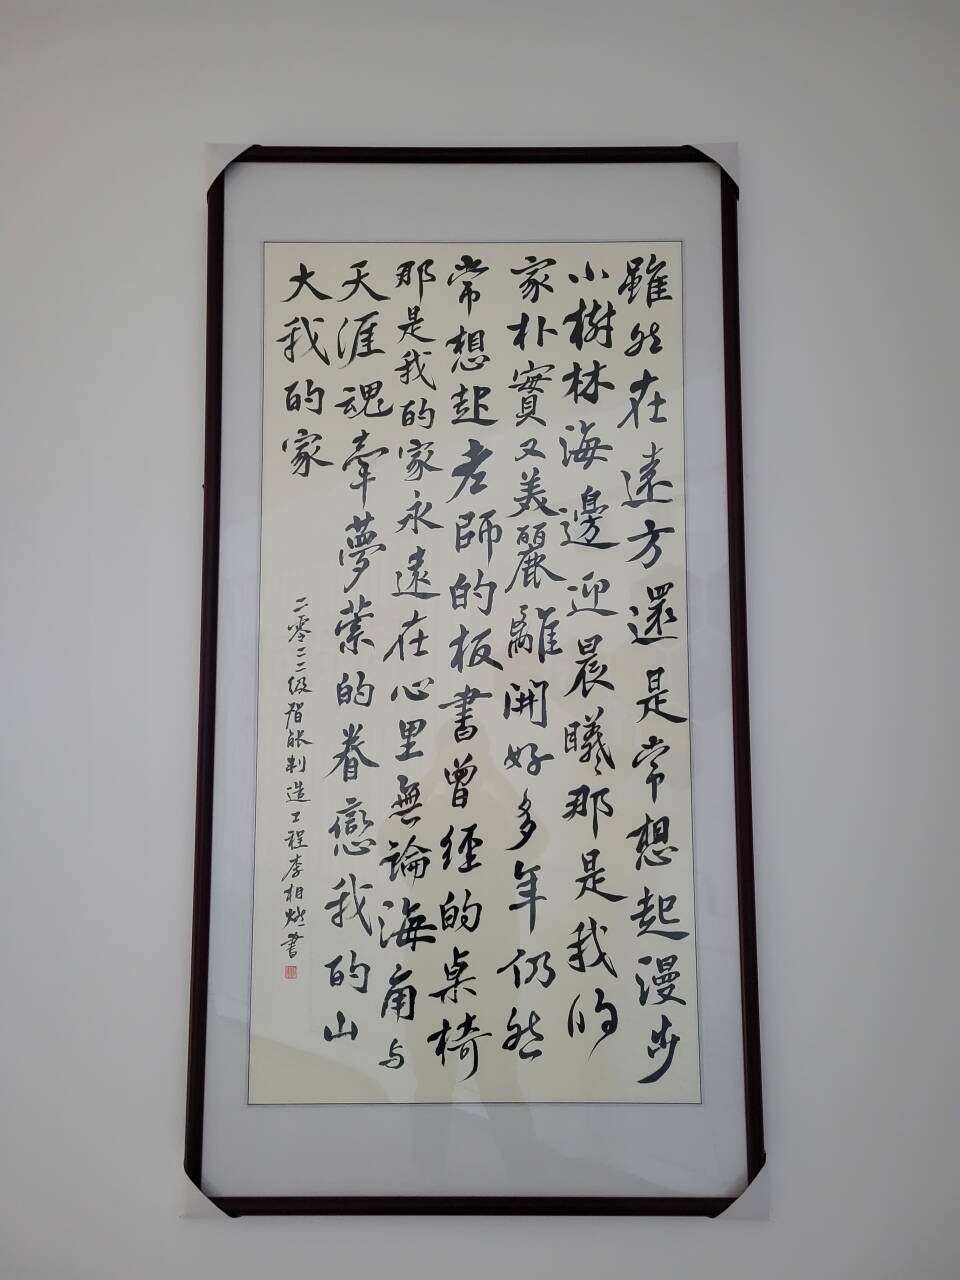 雖然在遠方還是常想起漫步
小樹林海邊迎晨曦那是我的
家朴實又美麗離開好多年仍然
常想起老師的板書曾經的桌椅
那是我的家永遠在心里無論海角与
天涯魂牽夢縈的眷戀我的山
大我的家
二零二二级智能制造工程李相燃書